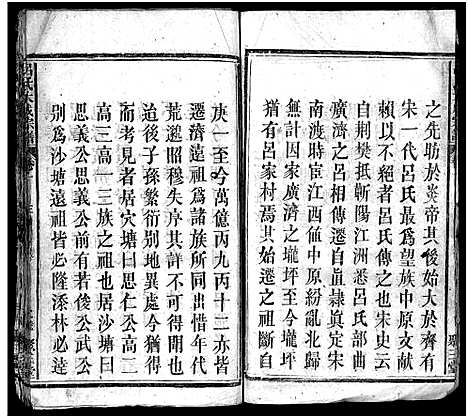 之先肪於炎帝其後始大於齊有
宋一代呂氏最爲望族中原文獻
可考見者呂氏傳之也宋史云
自荆樊抵蘄陽江洲悉呂氏部曲
廣濟之呂相傳遷自真隸真定當
南渡時宦江西值中原紛亂北歸
不得遂家廣濟之壠坪至今壠坪
猶有呂家村焉其始遷之祖斷自
庚一至今萬億丙九丙十二亦皆
遷濟遠祖爲諸族所公惜年代
荒邈穆失序其詳不可得聞也
迨後子孫繁衍别地異處今猶得
而考見者居穴塘曰思仁公高一
高二高一三族之祖也居沙塘曰
思義公思義公前有若俊公武公
别爲沙塘遠祖皆必隆添林必逵